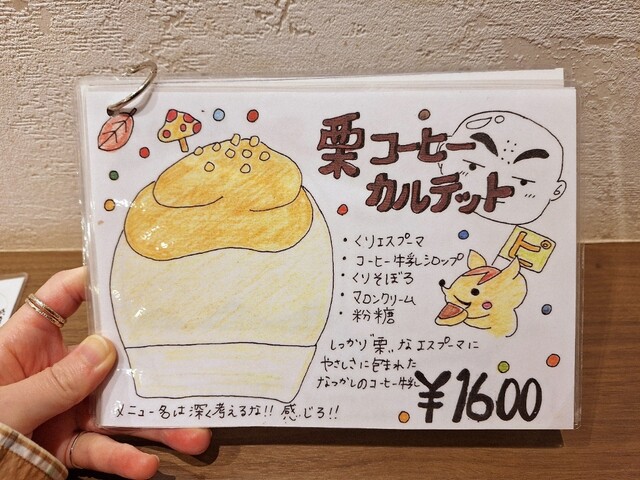 栗コーヒー
カルテット
・くりエスプーマ
・コーヒー牛乳シロップ
・くりそぼろ
・マロンクリーム
・粉糖
しっかり"栗"なエスプーマに
やさしさに包まれた
なつかしのコーヒー牛乳
¥1600
メニュー名は深く考えるな!! 感じろ!!